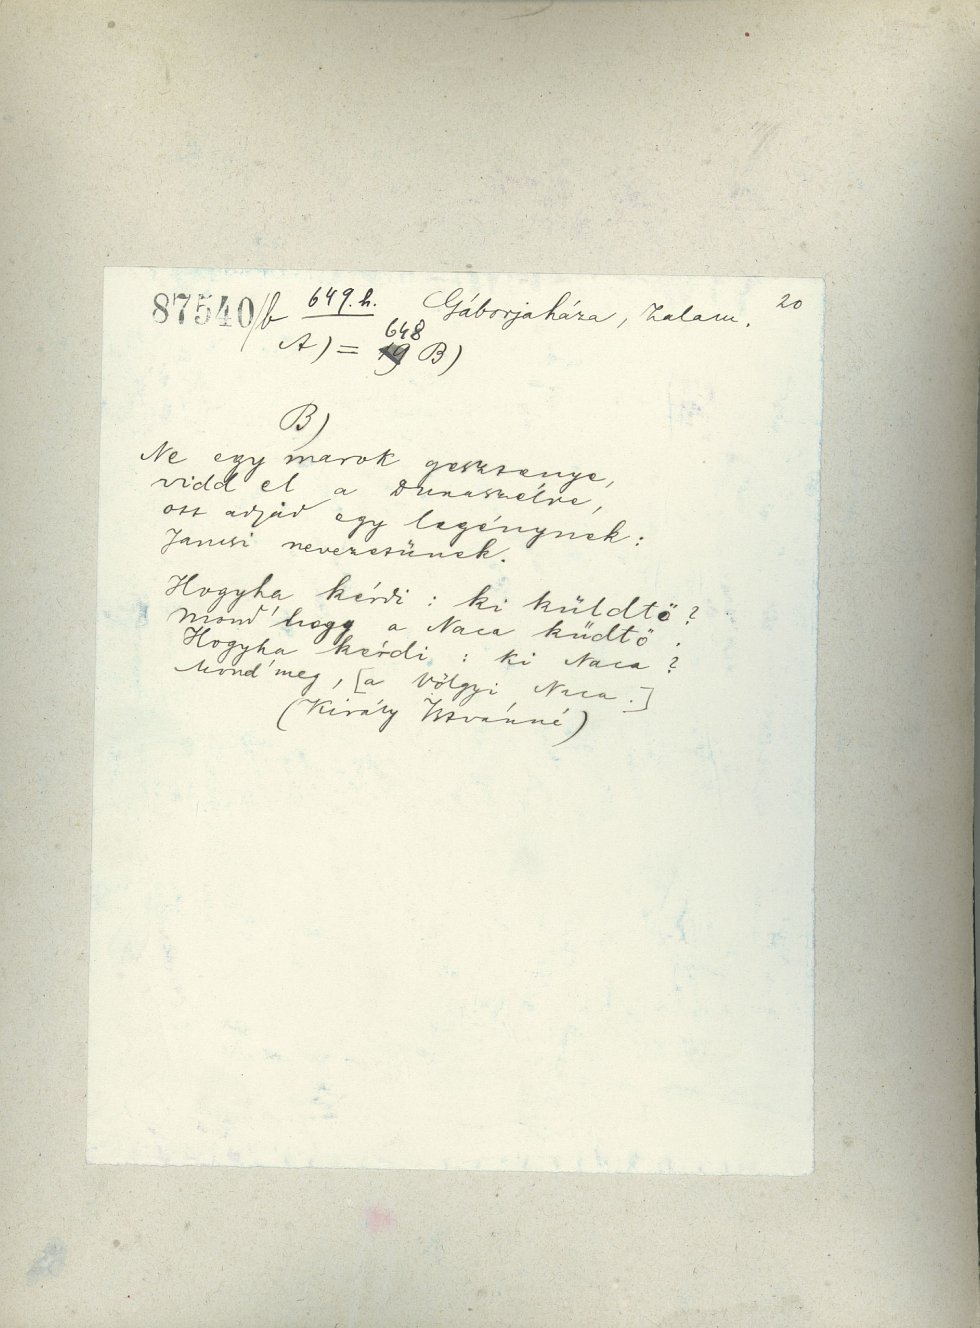 87540/b 649. h. Gáborjaháza, Zalam. 20
A) = 648 B)
B)
Ne egy marok gesztenye,
vidd el a Dunaszélre,
ott adjad egy legénynek:
Jancsi nevezetűnek.
Hogyha kérdi: ki küldtö?
mond' hogy a Naca küdtö.
Hogyha kérdi: ki Naca?
Mond' meg, [a völgyi Naca.]
(Király Istvánné)